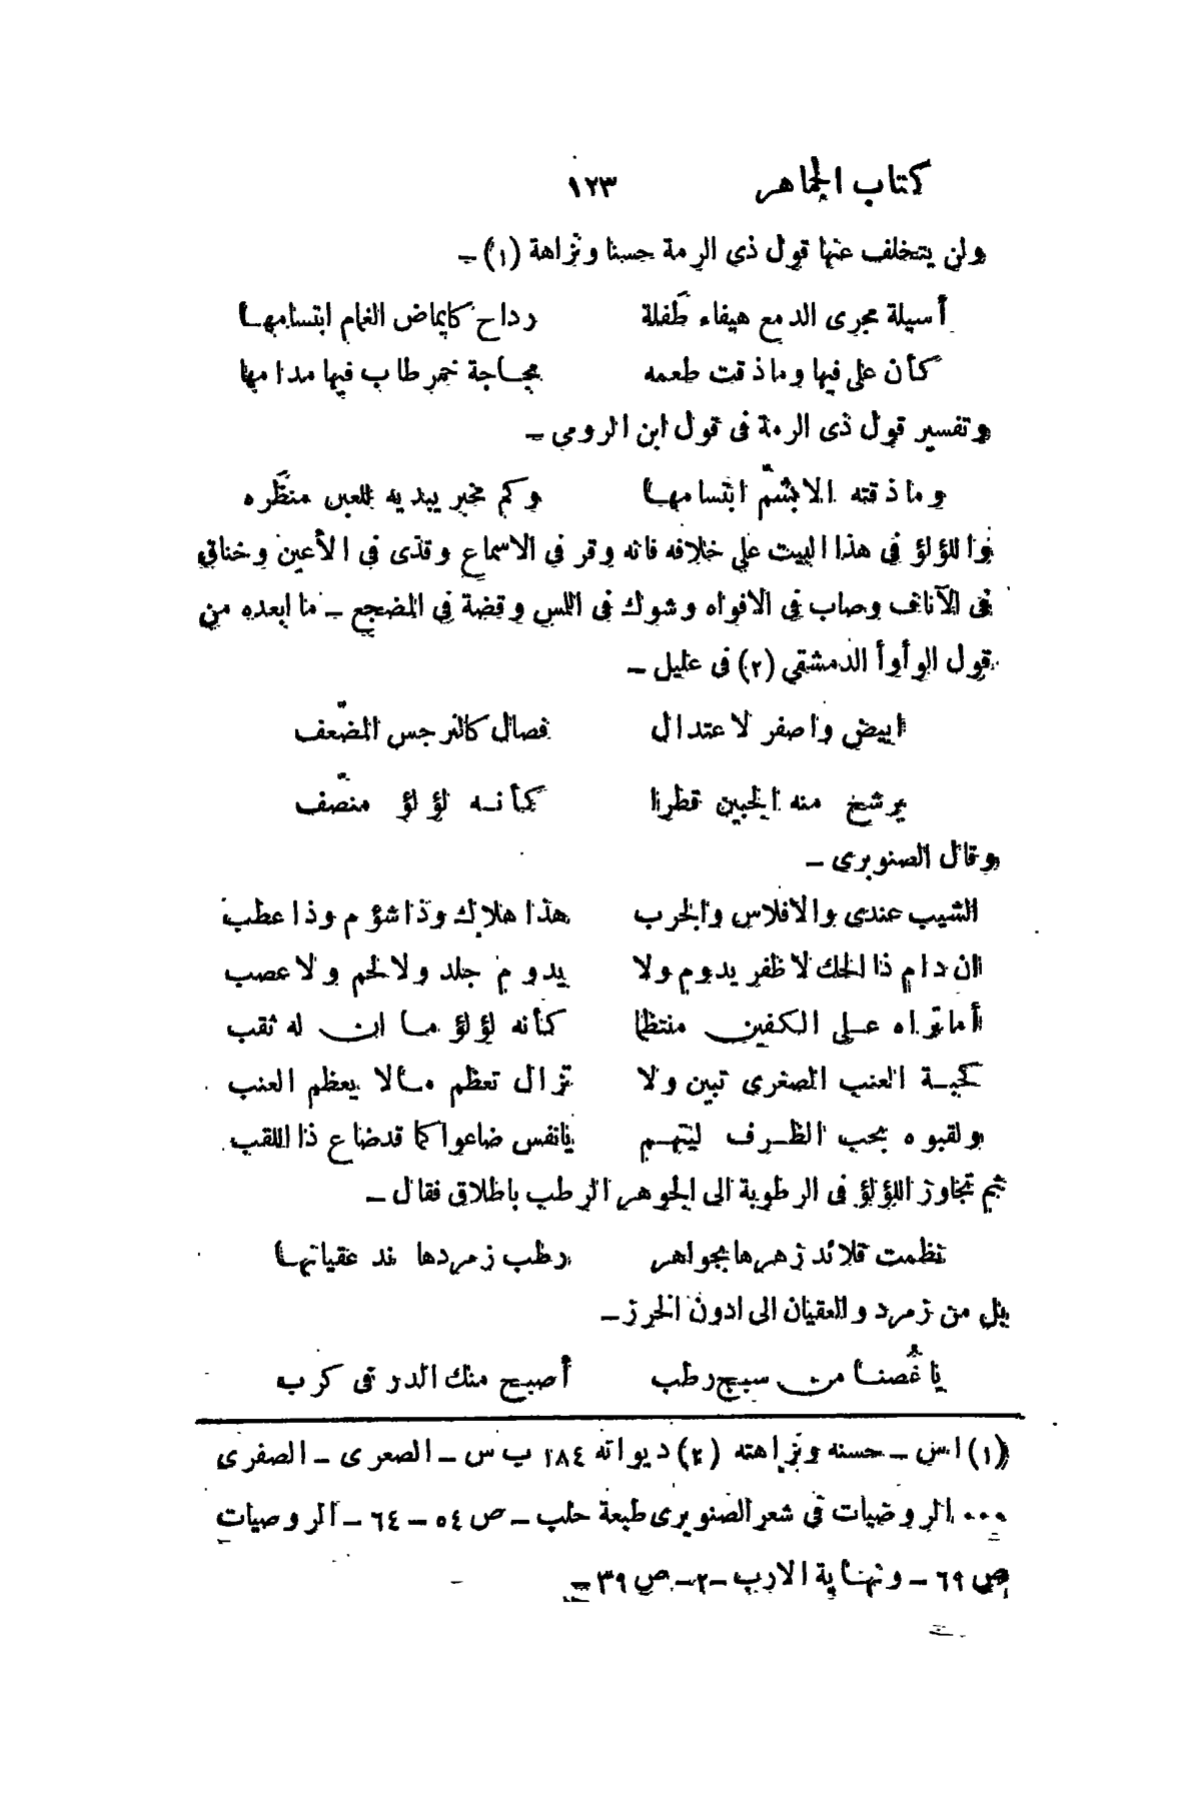 كتاب الجماهر ١٢٣
ولن يتخلف عنها قول ذى الرمة حسنا ونزاهة (١) –
أسيلة مجرى الدمع هيفاء طَفلة رداح كايماض الغمام ابتسامها
كأن على فيها وما ذقت طعمه مجاجة خمر طاب فيها مدامها
وتفسير قول ذى الرمة فى قول ابن الرومى –
وما ذقته الا بشمّ ابتسامها وكم مخبر يبديه للعين منظَره
واللؤلؤ فى هذا البيت على خلافه فانه وقر فى الاسماع وقذى فى الأعين وخناق
فى الآناف وصاب فى الافواه وشوك فى اللمس وقضة فى المضجع – ما ابعده من
قول الوأوأ الدمشقى (٢) فى عليل –
ابيض واصفر لاعتدال فصال كالنرجس المضّعف
يرشح منه الجبين قطرا كأنه لؤلؤ منصّف
وقال الصنوبرى –
الشيب عندى والافلاس والجرب هذا هلاك وذا شؤم وذا عطب
ان دام ذا الحك لا ظفر يدوم ولا يدوم جلد ولا لحم ولا عصب
أما تراه على الكفين منتظما كأنه لؤلؤ ما ان له ثقب
كحبة العنب الصغرى تبين ولا تزال تعظم مالا يعظم العنب
ولقبوه بحب الظرف ليتهم يا نفس ضاعوا كما قد ضاع ذا اللقب
ثم تجاوز اللؤلؤ فى الرطوبة الى الجوهر الرطب باطلاق فقال –
نظمت قلائد زهرها بجواهر رطب زمردها ند عقيانها
بل من زمرد والعقيان الى ادون الخرز –
يا غُصنا من سبج رطب أصبح منك الدر فى كرب
(١) اس – حسنه ونزاهته (٢) ديوانه ١٨٤ ب س – الصعرى – الصفرى
... الروضيات فى شعر الصنوبرى طبعة حلب – ص ٥٤ – ٦٤ – الروضيات
ص ٦٩ – ونهاية الارب – ٢ – ص ٣٩ –